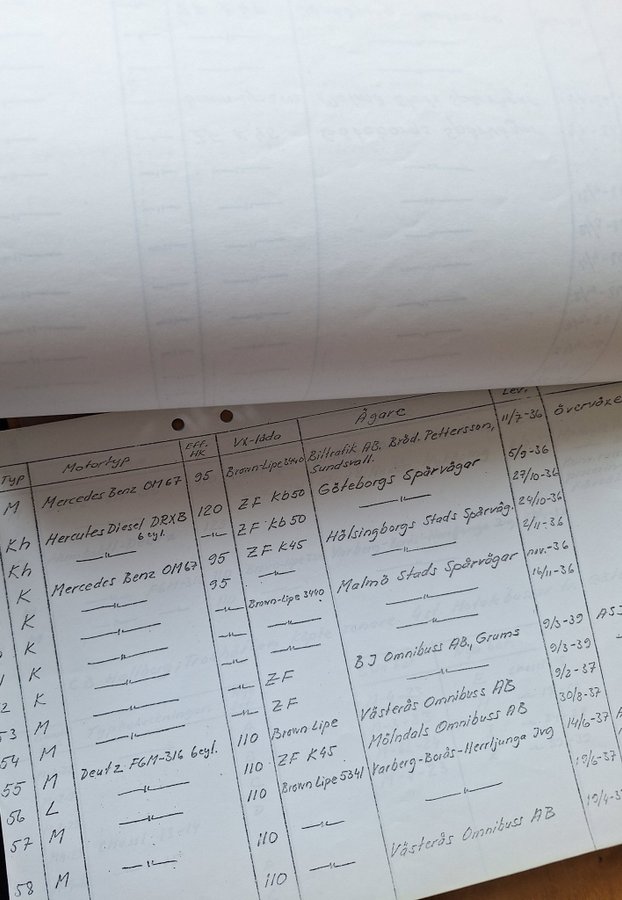 Typ Motortyp EFF. HK Vx-låda Ägare Lev.
M Mercedes Benz OM67 95 Brown-Lipe 3440 Biltrafik AB. Bröd. Pettersson, Sundsvall. 11/7-36 Övervåxe
Kh Hercules Diesel DRXB 6 cyl. 120 ZF Kb50 Göteborgs Spårvägar 5/9-36
Kh —"— —"— ZF Kb50 —"— 27/10-36
K Mercedes Benz OM67 95 ZF K45 Hälsingborgs Stads Spårväg. 24/10-36
K —"— 95 —"— —"— 2/11-36
K —"— —"— Brown-Lipe 3440 Malmö Stads Spårvägar nov.-36
K —"— —"— —"— —"— 14/11-36
K —"— —"— ZF —"—
53 M —"— —"— ZF BJ Omnibuss AB., Grums 9/3-39 ASJ
54 M Deutz FGM-316 6cyl. 110 Brown Lipe —"— 9/3-39
55 M —"— 110 ZF K45 Västerås Omnibuss AB 9/2-37
56 L —"— 110 Brown Lipe 5341 Mölndals Omnibuss AB 30/8-37
57 M —"— 110 —"— Varberg-Borås-Herrljunga Jvg 14/6-37
58 M 110 —"— —"— 19/6-37
Västerås Omnibuss AB 19/4-37